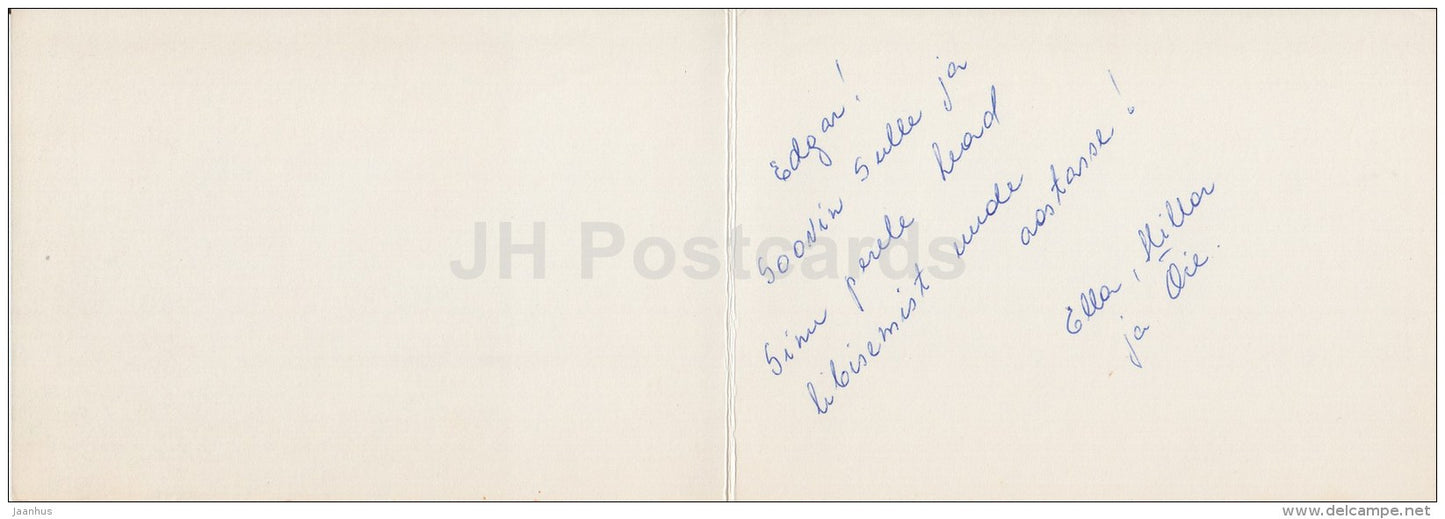 Edgar!
Soovin Sulle ja
Sinu perele head
libisemist uude
aastasse!
Ella, Millar
ja Õie.
JH Postcards
Jaanhus
www.delcampe.net